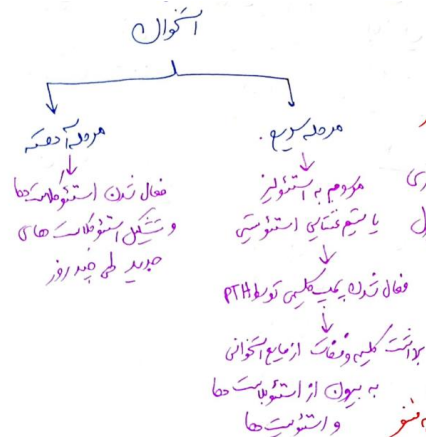 استخوان
مرحله سریع.
موسوم به استئولیز
یا سیستم غشایی استئوسیتی
فعال شدن پمپ کلسیمی توسط PTH
برداشت کلسیم و فسفات از مایع استخوانی
به بیرون از استئوبلاست ها
و استئوسیت ها
مرحله آهسته
فعال شدن استئوکلاست ها
و تشکیل استئوکلاست های
جدید طی چند روز